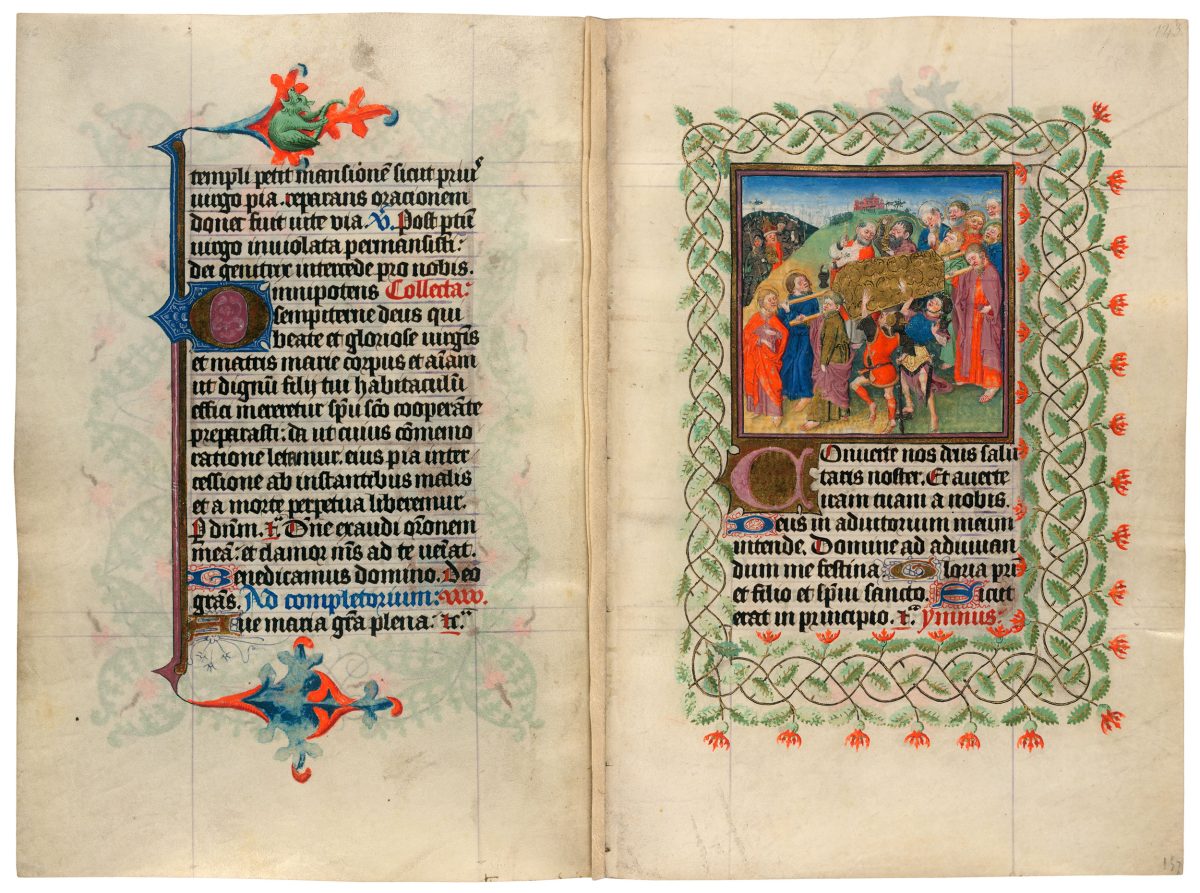 templi petit mansionē sicut prius
uirgo pia. reparans orationem
donec fuit uite uia. V. Post ptū
uirgo inuiolata permansisti:
dei genitrix intercede pro nobis.
Omnipotens Collecta:
sempiterne deus qui
beate et gloriose uirgīs
et matris marie corpus et aīam
ut dignū filij tui habitaculū
effici mereretur spū sc̄o cooperāte
preparasti: da ut cuius cōmemo
ratione letamur. eius pia inter
cessione ab instantibus malis
et a morte perpetua liberemur.
P dnm̄. Dn̄e exaudi orōnem
meā: et clamor m̄s ad te ueīat.
Benedicamus domino. Deo
grās. Ad completorium:
Aue maria gr̄a plena:
143
Conuerte nos deus salu
taris noster. Et auerte
iram tuam a nobis.
Deus in adiutorium meum
intende. Domine ad adiuuan
dum me festina Gloria pr̄i
et filio et spūi sancto. Sicut
erat in principio. Ymnus:
157